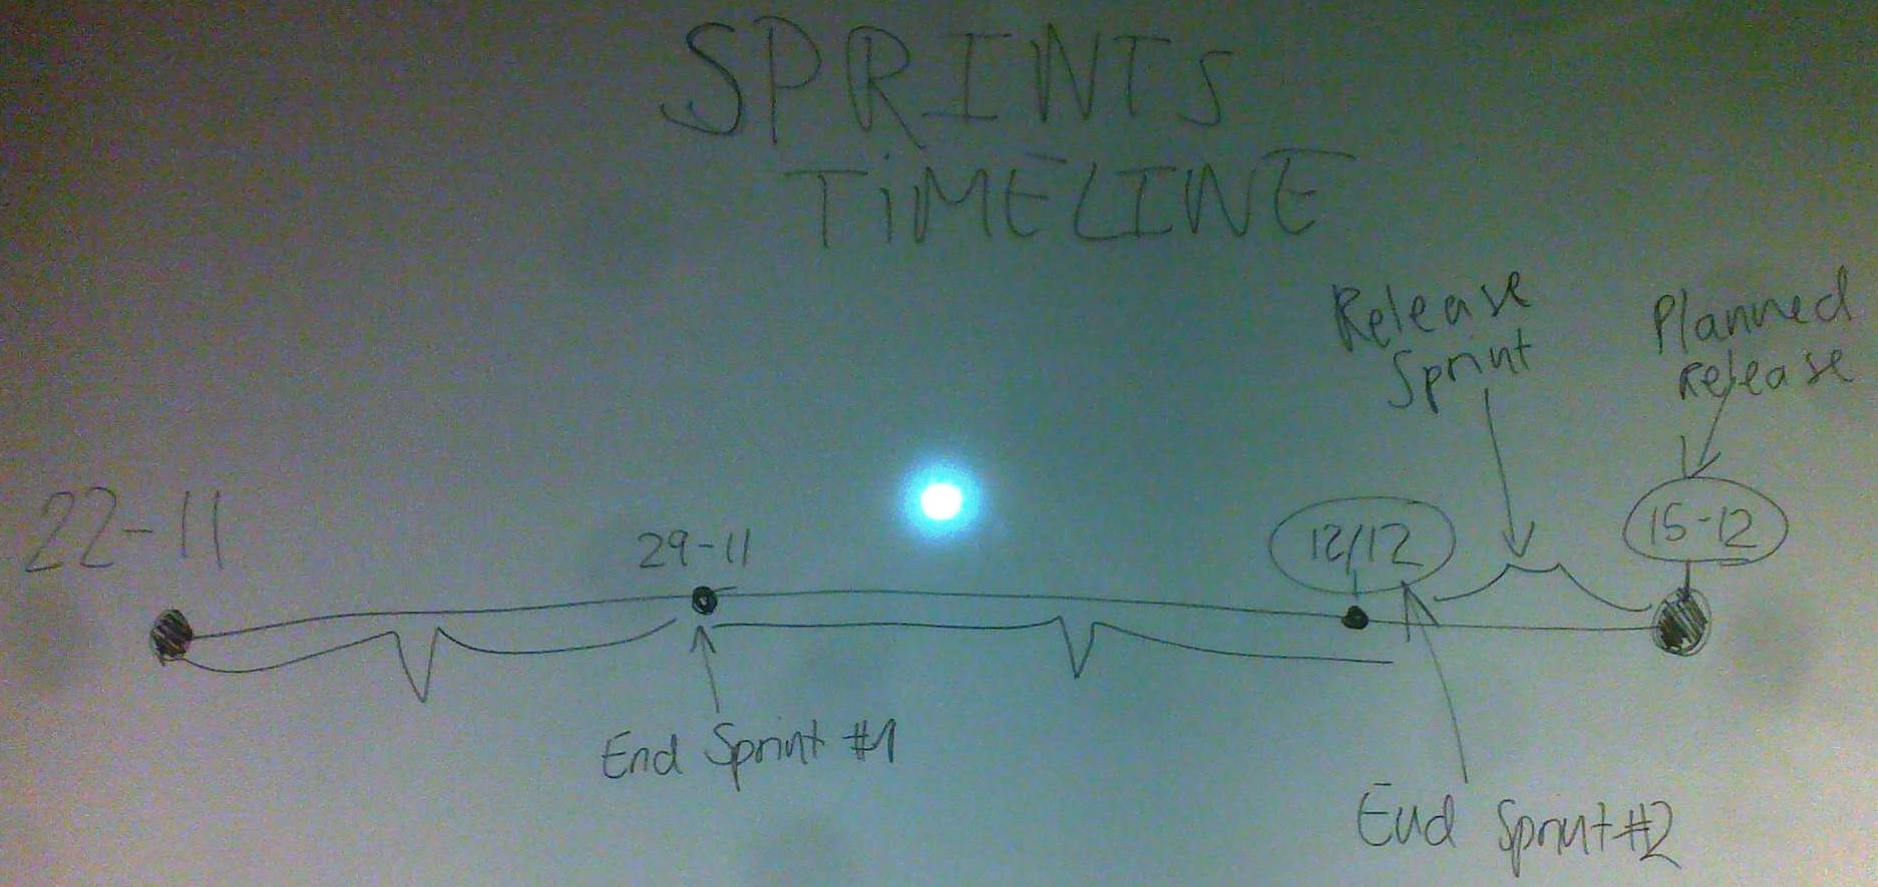 SPRINTS
TIMELINE
Release
Sprint
Planned
Release
22-11
29-11
12/12
15-12
End Sprint #1
End Sprint #2